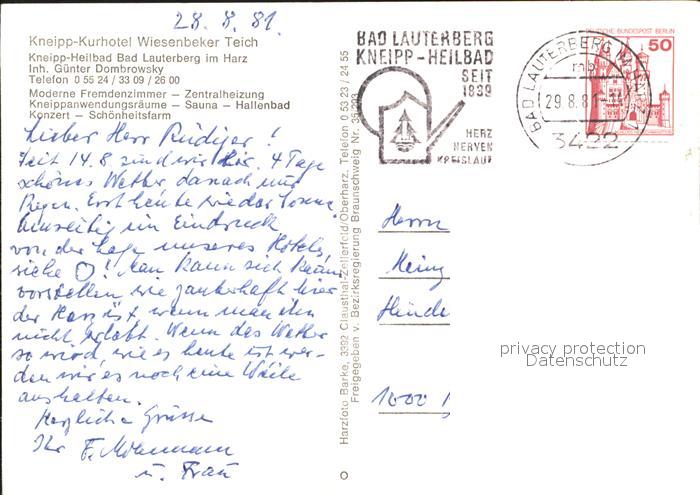 28. 8. 81.
Kneipp-Kurhotel Wiesenbeker Teich
Kneipp-Heilbad Bad Lauterberg im Harz
Inh. Günter Dombrowsky
Telefon 0 55 24 / 33 09 / 26 00
Moderne Fremdenzimmer — Zentralheizung
Kneippanwendungsräume — Sauna — Hallenbad
Konzert — Schönheitsfarm
Lieber Herr Rüdiger!
Seit 14.8 sind wir hier. 4 Tage
schönes Wetter, danach nur
Regen. Erst heute wieder Sonne.
Umseitig ein Eindruck
von der Lage unseres Hotels,
siehe O! Man kann sich kaum
vorstellen wie zauberhaft hier
der Harz ist, wenn man ihn
nicht erlebt. Wenn das Wetter
so wird, wie es heute ist wer-
den wir es noch eine Weile
aushalten.
Herzliche Grüsse
Ihr F.
u. Frau
Harzfoto Barke, 3392 Clausthal-Zellerfeld/Oberharz, Telefon 0 53 23 / 24 55
Freigegeben v. Bezirksregierung Braunschweig Nr.
BAD LAUTERBERG
KNEIPP-HEILBAD
SEIT
1839
HERZ
NERVEN
KREISLAUF
BAD LAUTERBERG IM HARZ 1
mb
29.8.81
3422
DEUTSCHE BUNDESPOST BERLIN
50
Herrn
Heinz
1000
privacy protection
Datenschutz